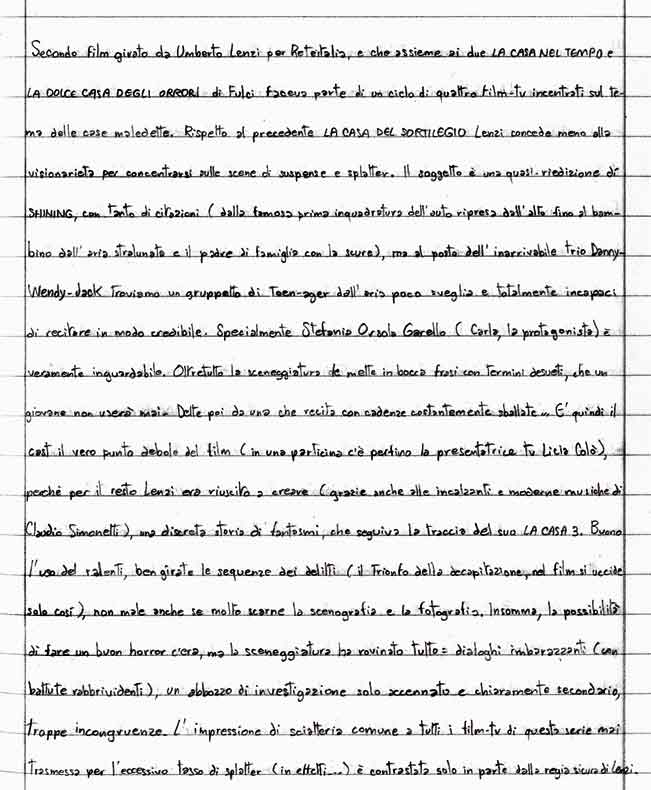 Secondo film girato da Umberto Lenzi per Reteitalia, e che assieme ai due LA CASA NEL TEMPO e
LA DOLCE CASA DEGLI ORRORI di Fulci faceva parte di un ciclo di quattro film-tv incentrati sul te-
ma delle case maledette. Rispetto al precedente LA CASA DEL SORTILEGIO Lenzi concede meno alla
visionarietà per concentrarsi sulle scene di suspense e splatter. Il soggetto è una quasi-riedizione di
SHINING, con tanto di citazioni (dalla famosa prima inquadratura dell'auto ripresa dall'alto fino al bam-
bino dall'aria stralunata e il padre di famiglia con la scure), ma al posto dell'inarrivabile trio Danny-
Wendy-Jack troviamo un gruppetto di teen-ager dall'aria poco sveglia e totalmente incapaci
di recitare in modo credibile. Specialmente Stefania Orsola Garello (Carla, la protagonista) è
veramente inguardabile. Oltretutto la sceneggiatura le mette in bocca frasi con termini desueti, che un
giovane non userà mai. Dette poi da una che recita con cadenze costantemente sballate... E' quindi il
cast il vero punto debole del film (in una particina c'è perfino la presentatrice tv Licia Colò),
perché per il resto Lenzi era riuscito a creare (grazie anche alle incalzanti e moderne musiche di
Claudio Simonetti), una discreta storia di fantasmi, che seguiva la traccia del suo LA CASA 3. Buono
l'uso del ralenti, ben girate le sequenze dei delitti (il trionfo della decapitazione, nel film si uccide
solo così), non male anche se molto scarne la scenografia e la fotografia. Insomma, la possibilità
di fare un buon horror c'era, ma la sceneggiatura ha rovinato tutto: dialoghi imbarazzanti (con
battute rabbrividenti), un abbozzo di investigazione solo accennato e chiaramente secondario,
troppe incongruenze. L'impressione di sciatteria comune a tutti i film-tv di questa serie mai
trasmessa per l'eccessivo tasso di splatter (in effetti...) è contrastata solo in parte dalla regia sicura di Lenzi.